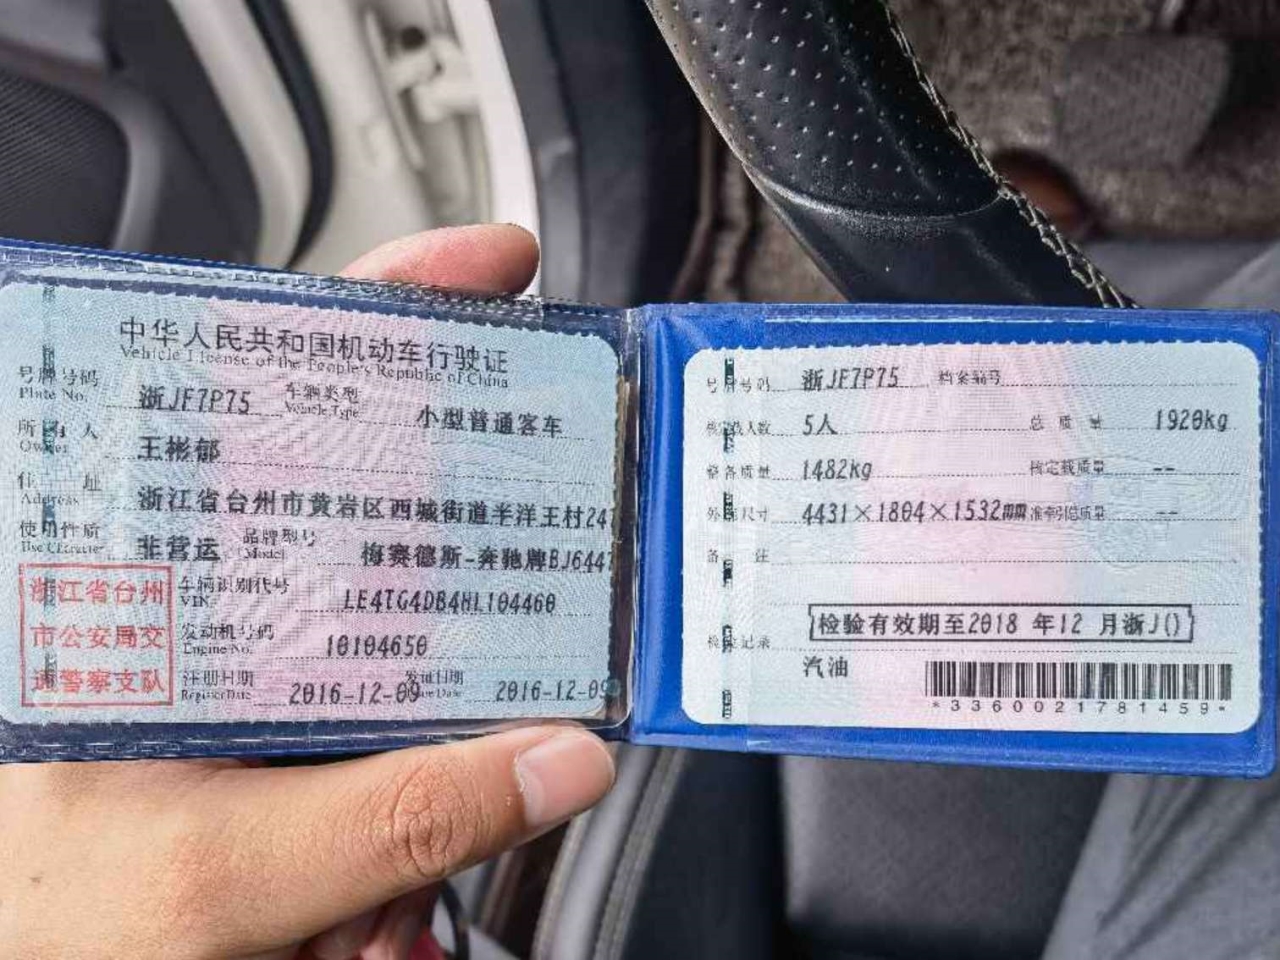 中华人民共和国机动车行驶证
Vehicle License of the People's Republic of China
号牌号码 浙JF7P75 车辆类型 小型普通客车
Plate No. Vehicle Type
所有人 王彬郁
Owner
住址 浙江省台州市黄岩区西城街道半洋王村247
Address
使用性质 非营运 品牌型号 梅赛德斯-奔驰牌BJ6447
Use Character Model
浙江省台州
市公安局交
通警察支队
车辆识别代号 LE4TG4DB4HL104460
VIN
发动机号码 10104650
Engine No.
注册日期 2016-12-09 发证日期 2016-12-09
Register Date Issue Date
号牌号码 浙JF7P75 档案编号
核定载人数 5人 总质量 1920kg
整备质量 1482kg 核定载质量 --
外廓尺寸 4431×1804×1532mm 准牵引总质量 --
备注
检验有效期至2018 年12 月浙J()
检验记录
汽油
*3360021781459*